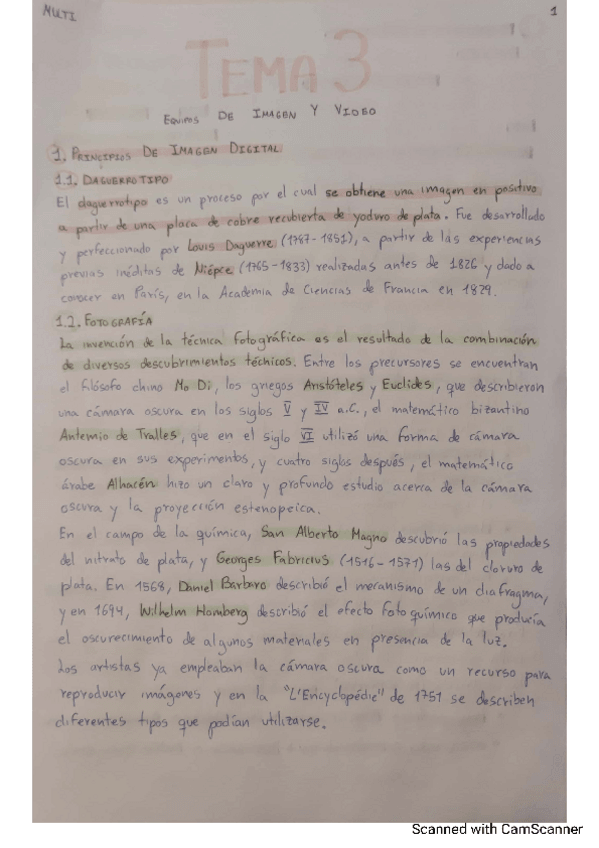 MULTI
1
TEMA 3
EQUIPOS DE IMAGEN Y VIDEO
1. PRINCIPIOS DE IMAGEN DIGITAL
1.1. DAGUERROTIPO
El daguerrotipo es un proceso por el cual se obtiene una imagen en positivo
a partir de una placa de cobre recubierta de yoduro de plata. Fue desarrollado
y perfeccionado por Louis Daguerre (1787-1851), a partir de las experiencias
previas inéditas de Niépce (1765-1833) realizadas antes de 1826 y dado a
conocer en París, en la Academia de Ciencias de Francia en 1829.
1.2. FOTOGRAFÍA
La invención de la técnica fotográfica es el resultado de la combinación
de diversos descubrimientos técnicos. Entre los precursores se encuentran
el filósofo chino Mo Di, los griegos Aristóteles y Euclides, que describieron
una cámara oscura en los siglos V y IV a.C., el matemático bizantino
Antemio de Tralles, que en el siglo VI utilizó una forma de cámara
oscura en sus experimentos, y cuatro siglos después, el matemático
árabe Alhacén hizo un claro y profundo estudio acerca de la cámara
oscura y la proyección estenopeica.
En el campo de la química, San Alberto Magno descubrió las propiedades
del nitrato de plata, y Georges Fabricius (1516-1571) las del cloruro de
plata. En 1568, Daniel Barbaro describió el mecanismo de un diafragma,
y en 1694, Wilhelm Homberg describió el efecto fotoquímico que producía
el oscurecimiento de algunos materiales en presencia de la luz.
Los artistas ya empleaban la cámara oscura como un recurso para
reproducir imágenes y en la "L'Encyclopédie" de 1751 se describen
diferentes tipos que podían utilizarse.
Scanned with CamScanner